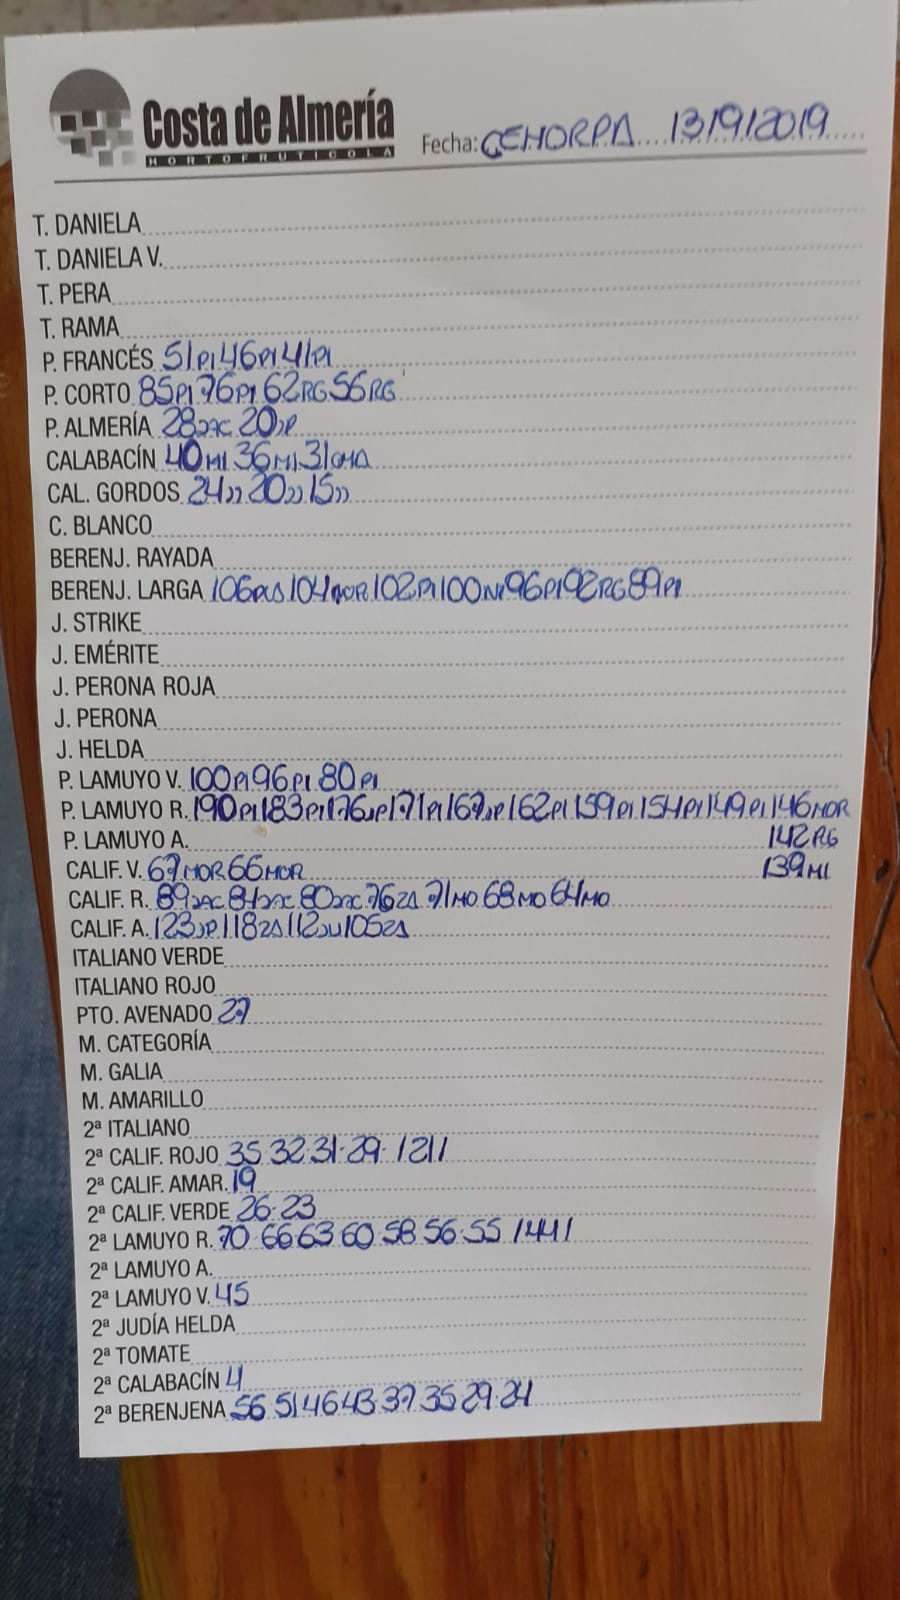 Costa de Almería
HORTOFRUTICOLA
Fecha: CEHORPA 13/9/2019
T. DANIELA
T. DANIELA V.
T. PERA
T. RAMA
P. FRANCÉS 51PI 46PI 41PI
P. CORTO 85PI 76PI 62RG 56RG
P. ALMERÍA 28 20
CALABACÍN 40MI 36MI 31
CAL. GORDOS 24" 20" 15"
C. BLANCO
BERENJ. RAYADA
BERENJ. LARGA 106 104MOR 102PI 100 96PI 92RG 89PI
J. STRIKE
J. EMÉRITE
J. PERONA ROJA
J. PERONA
J. HELDA
P. LAMUYO V. 100PI 96PI 80PI
P. LAMUYO R. 190PI 183PI 176JP 171PI 167JP 162PI 159PI 154PI 149PI 146MOR
P. LAMUYO A. 142RG
CALIF. V. 67MOR 66MOR 139MI
CALIF. R. 89 84 80 76ZA 71MO 68MO 64MO
CALIF. A. 123JP 118ZA 112JU 105ZA
ITALIANO VERDE
ITALIANO ROJO
PTO. AVENADO 27
M. CATEGORÍA
M. GALIA
M. AMARILLO
2ª ITALIANO
2ª CALIF. ROJO 35 32 31 29 /21/
2ª CALIF. AMAR. 19
2ª CALIF. VERDE 26 23
2ª LAMUYO R. 70 66 63 60 58 56 55 /44/
2ª LAMUYO A.
2ª LAMUYO V. 45
2ª JUDÍA HELDA
2ª TOMATE
2ª CALABACÍN 4
2ª BERENJENA 56 51 46 43 37 35 29 24